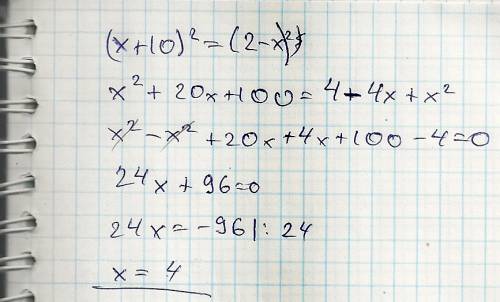 (x+10)² = (2-x)²
x² + 20x + 100 = 4 - 4x + x²
x² - x² + 20x + 4x + 100 - 4 = 0
24x + 96 = 0
24x = -96 |: 24
x = 4